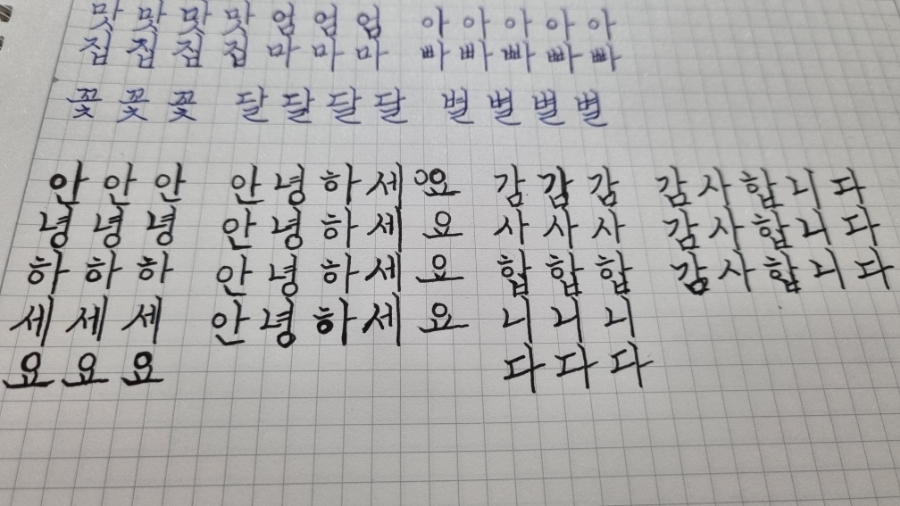 맛 맛 맛 맛 엄 엄 엄 아 아 아 아 아
집 집 집 집 마 마 마 빠 빠 빠 빠 빠
꽃 꽃 꽃 달 달 달 달 별 별 별 별
안 안 안 안 녕 하 세 요 감 감 감 감 사 합 니 다
녕 녕 녕 안 녕 하 세 요 사 사 사 감 사 합 니 다
하 하 하 안 녕 하 세 요 합 합 합 감 사 합 니 다
세 세 세 안 녕 하 세 요 니 니 니
요 요 요 다 다 다